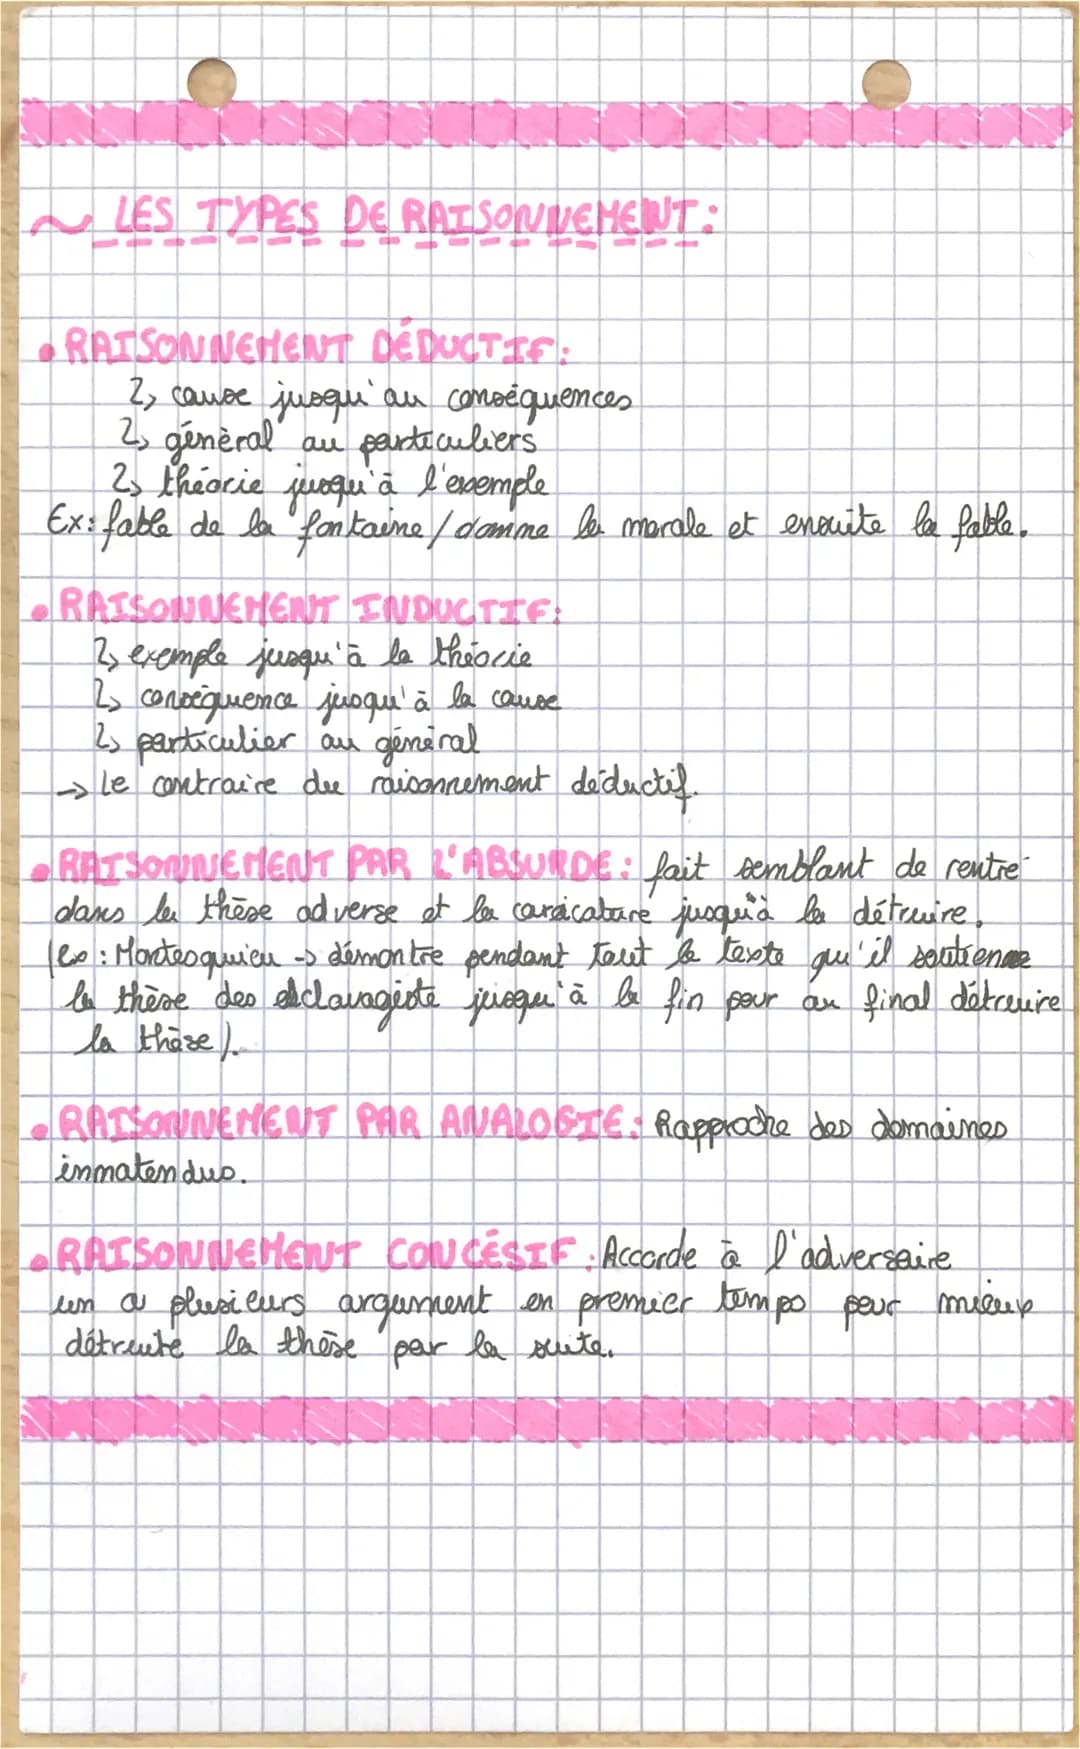 ~ LES TYPES DE RAISONNEMENT :
• RAISONNEMENT DÉDUCTIF :
↳ cause jusqu'au conséquences
↳ général au particuliers
↳ théorie jusqu'à l'exemple
Ex : fable de la fontaine / donne la morale et ensuite la fable.
• RAISONNEMENT INDUCTIF :
↳ exemple jusqu'à la théorie
↳ conséquence jusqu'à la cause
↳ particulier au général
→ Le contraire du raisonnement déductif.
• RAISONNEMENT PAR L'ABSURDE : fait semblant de rentré
dans la thèse adverse et la caricature jusqu'à la détruire.
(ex : Montesquieu -> démontre pendant tout le texte qu'il soutienne
la thèse des esclavagiste jusqu'à la fin pour au final détruire
la thèse).
• RAISONNEMENT PAR ANALOGIE : Rapproche des domaines
inmatendus.
• RAISONNEMENT CONCÉSIF : Accorde à l'adversaire
un ou plusieurs argument en premier temps pour mieux
détruite la thèse par la suite.